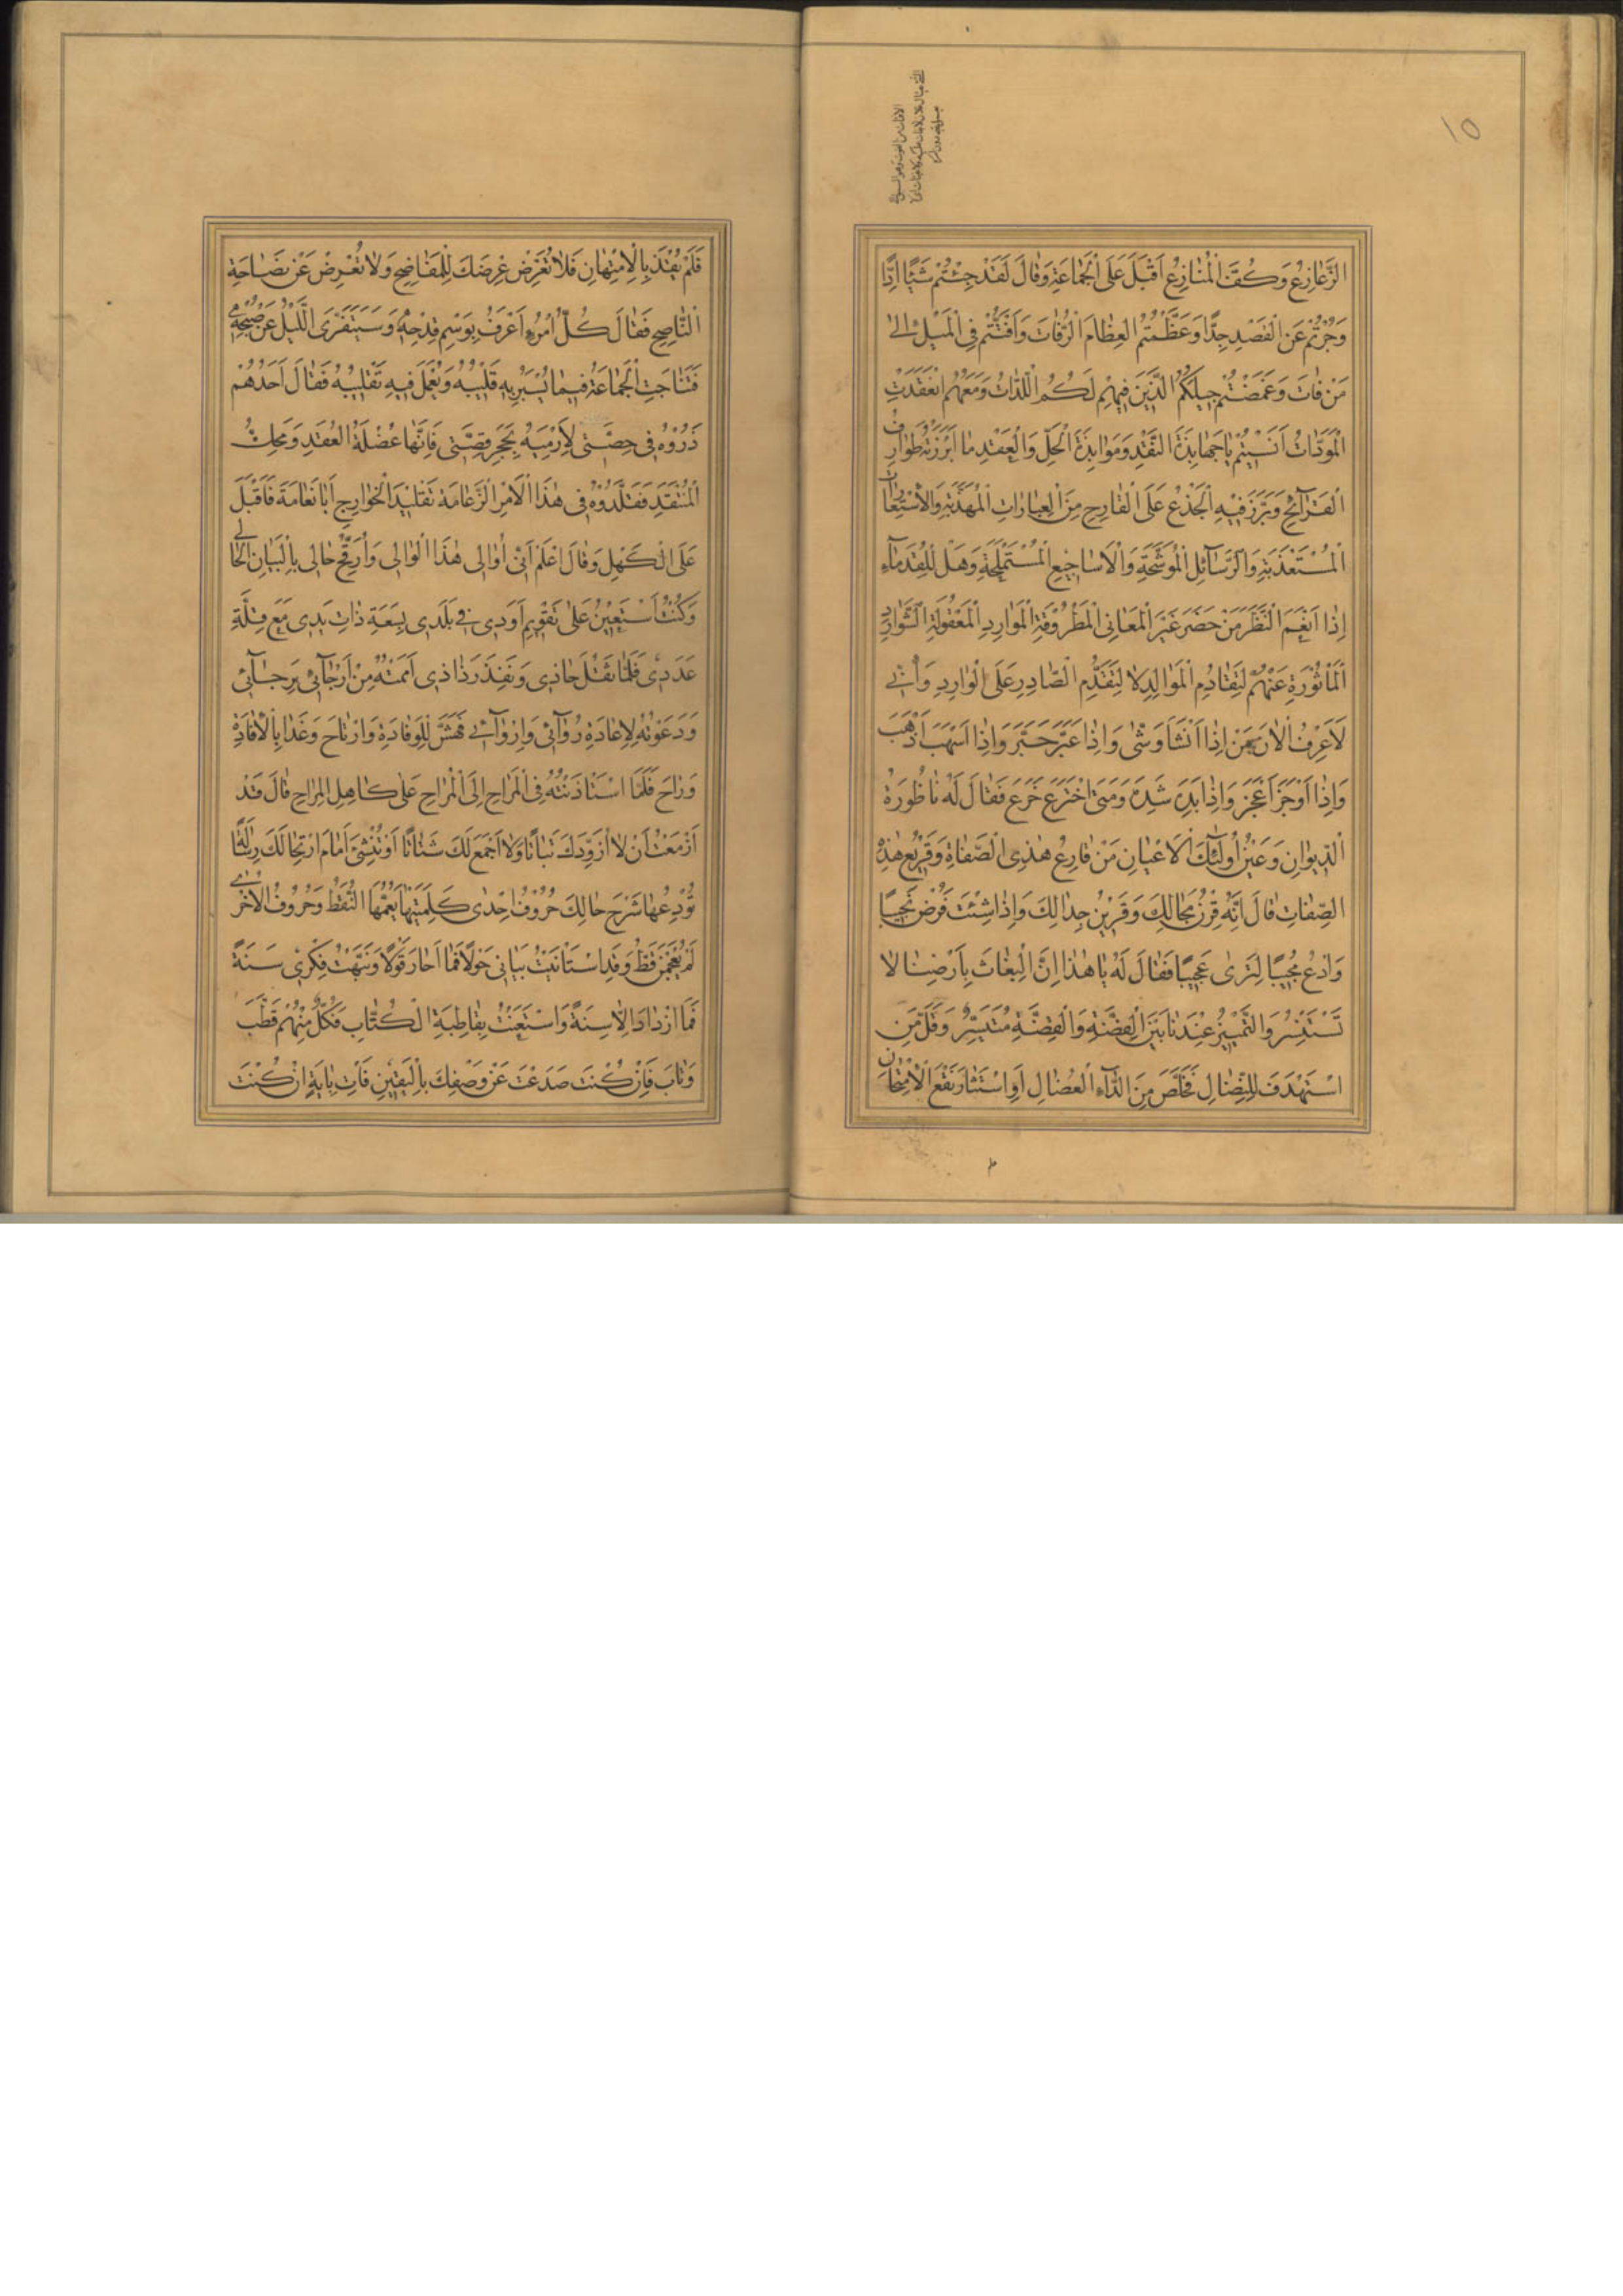 الزَّعَازِعُ وَكَفَّ الْمُنَازِعُ اَقْبَلَ عَلَى الْجَمَاعَةِ وَقَالَ لَقَدْ جِئْتُمْ شَيْئًا اِدًّا
وَجُرْتُمْ عَنِ الْقَصْدِ جِدًّا وَعَظَّمْتُمُ الْعِظَامَ الرُّفَاتَ وَافْتَتُّمْ فِى الْمَيْلِ اِلٰى
مَنْ فَاتَ وَغَمَصْتُمْ جِيلَكُمُ الَّذِينَ فِيهِمْ لَكُمُ اللِّدَاتُ وَمَعَهُمُ انْعَقَدَتِ
الْمَوَدَّاتُ اَنَسِيتُمْ يَا جَهَابِذَةَ النَّقْدِ وَمَوَابِذَةَ الْحَلِّ وَالْعَقْدِ مَا اَبْرَزَتْهُ طَوَارِفُ
الْقَرَآئِحِ وَبَرَّزَ فِيهِ الْجَذَعُ عَلَى الْقَارِحِ مِنَ الْعِبَارَاتِ الْمُهَذَّبَةِ وَالْاِسْتِعَارَاتِ
الْمُسْتَعْذَبَةِ وَالرَّسَآئِلِ الْمُوَشَّحَةِ وَالْاَسَاجِيعِ الْمُسْتَمْلَحَةِ وَهَلْ لِلْقُدَمَآءِ
اِذَا اَنْعَمَ النَّظَرَ مَنْ حَضَرَ غَيْرُ الْمَعَانِى الْمَطْرُوقَةِ الْمَوَارِدِ الْمَعْقُولَةِ الشَّوَارِدِ
الْمَأْثُورَةِ عَنْهُمْ لِتَقَادُمِ الْمَوَالِدِ لَا لِتَقَدُّمِ الصَّادِرِ عَلَى الْوَارِدِ وَاِنِّى
لَاَعْرِفُ الْاٰنَ مَنْ اِذَا اَنْشَأَ وَشّٰى وَاِذَا عَبَّرَ حَبَّرَ وَاِذَا اَسْهَبَ اَذْهَبَ
وَاِذَا اَوْجَزَ اَعْجَزَ وَاِذَا بَدَهَ شَدَهَ وَمَتَى اخْتَرَعَ خَرَعَ فَقَالَ لَهُ نَاظُورَةُ
الدِّيوَانِ وَعَيْنُ اُولٰٓئِكَ الْاَعْيَانِ مَنْ قَارِعُ هٰذِى الصَّفَاةِ وَقَرِيعُ هٰذِهِ
الصِّفَاتِ قَالَ اِنَّهُ قِرْنُ مَجَالِكَ وَقَرِينُ جِدَالِكَ وَاِذَا شِئْتَ فَرُضْ نَجِيبًا
وَادْعُ مُجِيبًا لِتَرٰى عَجِيبًا فَقَالَ لَهُ يَا هٰذَا اِنَّ الْبُغَاثَ بِاَرْضِنَا لَا
تَسْتَنْسِرُ وَالتَّمْيِيزُ عِنْدَنَا بَيْنَ الْفِضَّةِ وَالْقِضَّةِ مُتَيَسِّرٌ وَقَلَّ مَنِ
اسْتَهْدَفَ لِلنِّضَالِ فَخَلَصَ مِنَ الدَّآءِ الْعُضَالِ اَوِ اسْتَثَارَ نَقْعَ الْاِمْتِحَانِ
فَلَمْ يُقْذَ بِالْاِمْتِهَانِ فَلَا تُعَرِّضْ عِرْضَكَ لِلْمَفَاضِحِ وَلَا تُعْرِضْ عَنْ نَصَاحَةِ
النَّاصِحِ فَقَالَ كُلُّ امْرِئٍ اَعْرَفُ بِوَسْمِ قِدْحِهِ وَسَيَتَفَرَّى اللَّيْلُ عَنْ صُبْحِهِ
فَتَنَاجَتِ الْجَمَاعَةُ فِيمَا يُسْبَرُ بِهِ قَلِيبُهُ وَيُعْمَلُ فِيهِ تَقْلِيبُهُ فَقَالَ اَحَدُهُمْ
ذَرُوهُ فِى حِصَّتِى لِاَرْمِيَهُ بِحَجَرِ قِصَّتِى فَاِنَّهَا عُضْلَةُ الْعُقَدِ وَمَحَكُّ
الْمُنْتَقَدِ فَقَلَّدُوهُ فِى هٰذَا الْاَمْرِ الزَّعَامَةَ تَقْلِيدَ الْخَوَارِجِ اَبَا نَعَامَةَ فَاَقْبَلَ
عَلَى الْكَهْلِ وَقَالَ اعْلَمْ اَنِّى اُوَالِى هٰذَا الْوَالِى وَاُرَقِّحُ حَالِى بِالْبَيَانِ الْحَالِى
وَكُنْتُ اَسْتَعِينُ عَلٰى تَقْوِيمِ اَوَدِى فِى بَلَدِى بِسَعَةِ ذَاتِ يَدِى مَعَ قِلَّةِ
عَدَدِى فَلَمَّا ثَقُلَ حَاذِى وَنَفِدَ رَذَاذِى اَمَمْتُهُ مِنْ اَرْجَآئِى بِرَجَآئِى
وَدَعَوْتُهُ لِاِعَادَةِ رُوَآئِى وَاِرْوَآئِى فَهَشَّ لِلْوِفَادَةِ وَارْتَاحَ وَغَدَا بِالْاِفَادَةِ
وَرَاحَ فَلَمَّا اسْتَأْذَنْتُهُ فِى الْمَرَاحِ اِلَى الْمُرَاحِ عَلٰى كَاهِلِ الْمِرَاحِ قَالَ قَدْ
اَزْمَعْتُ اَنْ لَا اُزَوِّدَكَ بَتَاتًا وَلَا اَجْمَعَ لَكَ شَتَاتًا اَوْ تُنْشِئَ اَمَامَ ارْتِحَالِكَ رِسَالَةً
تُودِعُهَا شَرْحَ حَالِكَ حُرُوفُ اِحْدٰى كَلِمَتَيْهَا يَعُمُّهَا النُّقَطُ وَحُرُوفُ الْاُخْرٰى
لَمْ يُعْجَمْنَ قَطُّ وَقَدِ اسْتَأْنَيْتُ بَيَانِى حَوْلًا فَمَا اَحَارَ قَوْلًا وَنَبَّهْتُ فِكْرِى سَنَةً
فَمَا ازْدَادَ اِلَّا سِنَةً وَاسْتَعَنْتُ بِقَاطِبَةِ الْكُتَّابِ فَكُلٌّ مِنْهُمْ قَطَّبَ
وَتَابَ فَاِنْ كُنْتَ صَدَعْتَ عَنْ وَصْفِكَ بِالْيَقِينِ فَاْتِ بِاٰيَةٍ اِنْ كُنْتَ